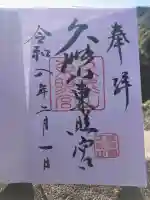 奉拝
久能山東照宮
令和八年二月一日